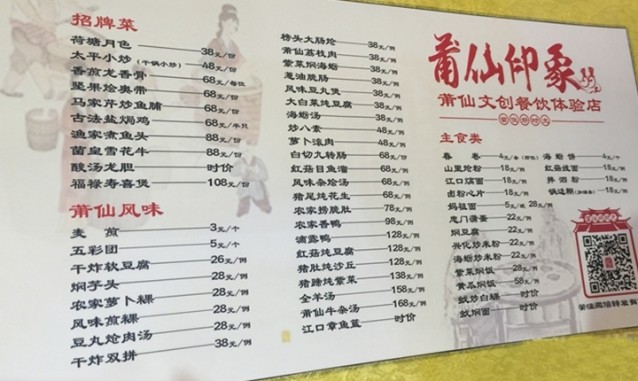 招牌菜
荷塘月色 38元/份
太平小炒(干锅小炒) 48元/份
香煎龙香骨 68元/每位
坚果炝奥带 68元/份
马家芹炒鱼脯 68元/份
古法盐焗鸡 68元/半只
渔家煮鱼头 88元/份
菌皇雪花牛 88元/份
酸汤龙胆 时价
福禄寿喜煲 108元/份
莆仙风味
麦煎 3元/个
五彩团 5元/个
干炸软豆腐 26元/例
焖芋头 28元/例
农家萝卜粿 28元/例
风味煎粿 28元/例
豆丸炝肉汤 28元/例
干炸双拼 38元/例
榜头大肠炝 38元/例
莆仙荔枝肉 38元/例
紫菜焖海蛎 38元/例
葱油脘肠 38元/例
风味豆丸煲 38元/例
大白菜炖豆腐 38元/例
海蛎汤 38元/例
炒八素 48元/例
萝卜滚肉 48元/例
白切九转肠 68元/例
红菇目鱼溜 68元/例
风味杂烩汤 68元/例
猪尾炖花生 68元/例
农家捞脘肚 78元/例
农家香鸭 98元/例
滴露鸭 128元/例
红菇炖豆腐 98元/例
猪肚炖沙丘 128元/例
猪蹄炖紫菜 138元/例
全羊汤 158元/例
莆仙牛杂汤 168元/例
江口章鱼蓝 时价
莆仙印象
莆仙文创餐饮体验店
主食类
春卷 4元/条
山里炝粉 18元/例
江口焿面 18元/例
卤粉心片 18元/例
妈祖面 5元/碗 28元/例
忠门薯蛋 22元/例
焖豆腐 22元/例
兴化炒米粉 22元/例
海蛎炒米粉 22元/例
紫菜焖饭 28元/例
黄瓜焖饭 58元/例
蚬炒白粿 时价
蚬焖面 时价
海蛎饼 4元/个
红菇线面 18元/例
锅边糊 18元/例